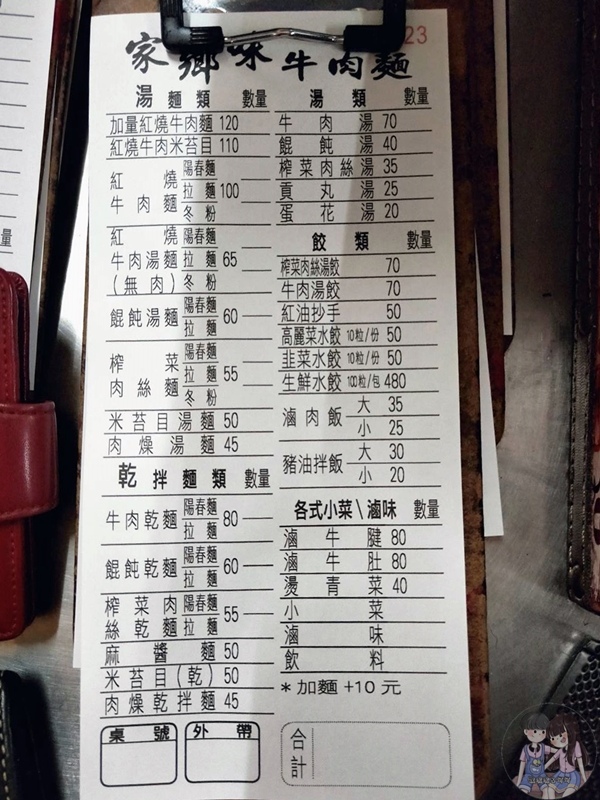 23
家鄉味牛肉麵
湯麵類 數量
加量紅燒牛肉麵 120
紅燒牛肉米苔目 110
紅燒牛肉麵 陽春麵 拉麵 冬粉 100
紅燒牛肉湯麵(無肉) 陽春麵 拉麵 冬粉 65
餛飩湯麵 陽春麵 拉麵 60
榨菜肉絲麵 陽春麵 拉麵 冬粉 55
米苔目湯麵 50
肉燥湯麵 45
乾拌麵類 數量
牛肉乾麵 陽春麵 拉麵 80
餛飩乾麵 陽春麵 拉麵 60
榨菜肉絲乾麵 陽春麵 拉麵 55
麻醬麵 50
米苔目(乾) 50
肉燥乾拌麵 45
桌號 外帶
湯類 數量
牛肉湯 70
餛飩湯 40
榨菜肉絲湯 35
貢丸湯 25
蛋花湯 20
餃類 數量
榨菜肉絲湯餃 70
牛肉湯餃 70
紅油抄手 50
高麗菜水餃 10粒/份 50
韭菜水餃 10粒/份 50
生鮮水餃 100粒/包 480
滷肉飯 大 35
小 25
豬油拌飯 大 30
小 20
各式小菜\滷味 數量
滷牛腱 80
滷牛肚 80
燙青菜 40
小菜
滷味
飲料
*加麵+10元
合計
數量